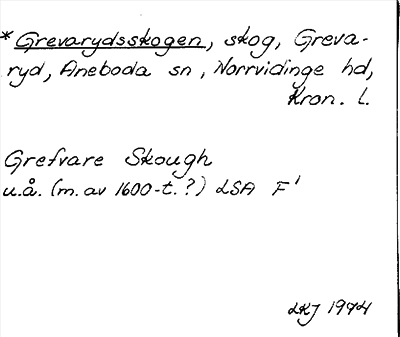 *Grevarydsskogen, skog, Greva-
ryd, Aneboda sn, Norrvidinge hd,
Kron. l.
Grefvare Skough
u.å. (m. av 1600-t.?) LSA F¹
LKJ 1974